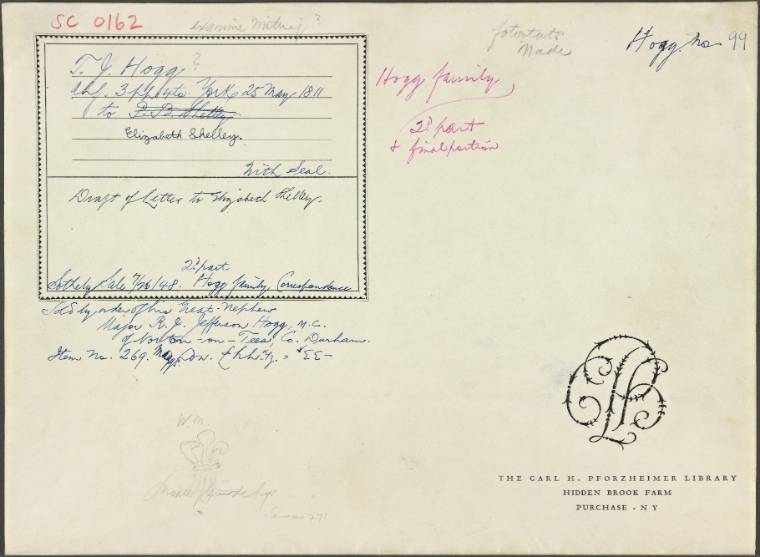 SC 0162
examine writing?
fotostats
Made
Hogg no 99
T. J. Hogg?
3 pp 4to York, 25 May 1811
to P. B. Shelley
Elizabeth Shelley.
With Seal.
Draft of Letter to Elizabeth Shelley.
2d part
Sotheby Sale 7/26/48. Hogg family, Correspondence
Sold by order of his Great-Nephew
Major R. J. Jefferson Hogg, M.C.
of Norton-on-Tees, Co. Durham.
Item No. 269.
Hogg family
2d part
& final portion
WM.
THE CARL H. PFORZHEIMER LIBRARY
HIDDEN BROOK FARM
PURCHASE · NY